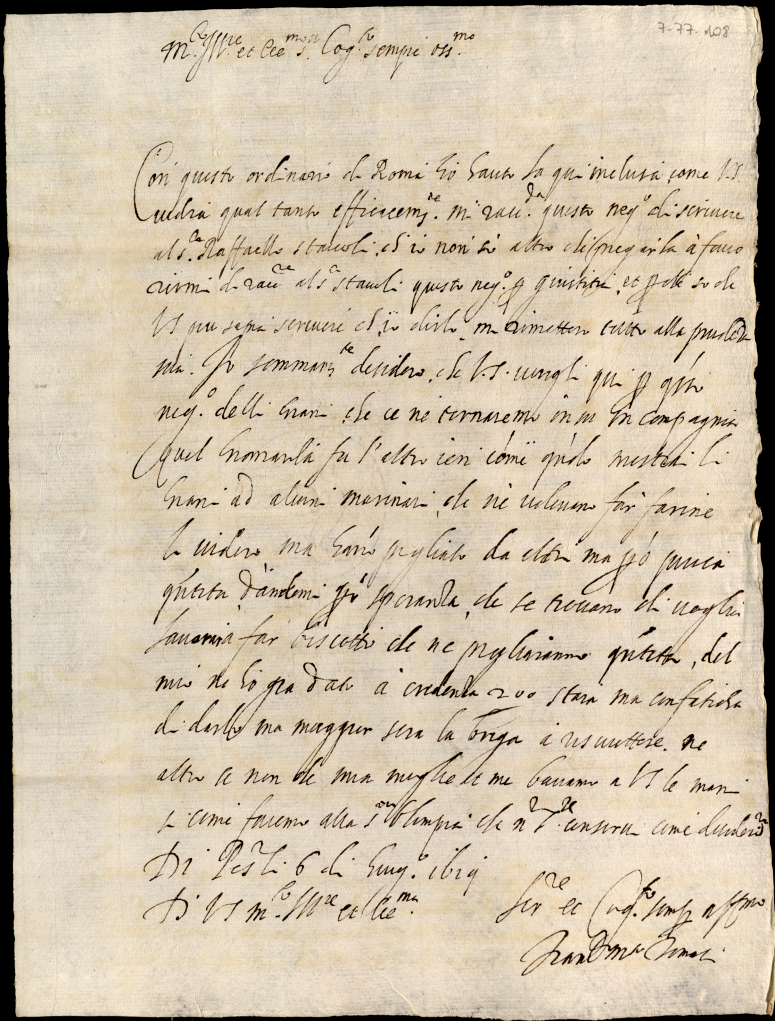 7-77-108
m.to Ill.re et Ecc.mo s.r Cog.to sempre oss.mo
Con questo ordinario di Roma hò hauto la qui inclusa, come V.S.
uedrà qual tanto efficacem.te mi racc.da questo neg.o di scriuere
al s.r Raffaello Staccoli, ch'io non sò altro che pregarla à fauo
rirmi di al s.r Staccoli questo neg.o p giustitia, et p che so che
VS più saprà scriuere ch'io dirlo, mi rimetterò tutto alla prudeza
sua. Io sommam.te desidero, che V.S. uenghi qui p q'sti
neg.o delli grani, che ce ne tornaremo in compagnia
quel fu l'altro ieri come q'do mostrai li
grani ad alcuni marinari, che ne uoleuano far farine
li uidero ma han pigliato da altri ma p ò pocca
q'ntità dandomi p ò speranza, che se trouano chi uoglia
far biscotti che ne pigliaranno q'ntità, del
mio ne hò gia dato à credenza 200 stara ma con faticha
di darlo ma maggior sera la briga à riscuottere. ne
altro se non che mia moglie et me baciamo a VS le mani
si come facemo alla s.ra Olimpia che n.ro s.re conserui come desidera
Di Pes.ro li 6 di Giug.o 1619
Di VS m.to Ill.re et Ecc.ma
Ser.re et Cog.to semp aff.mo